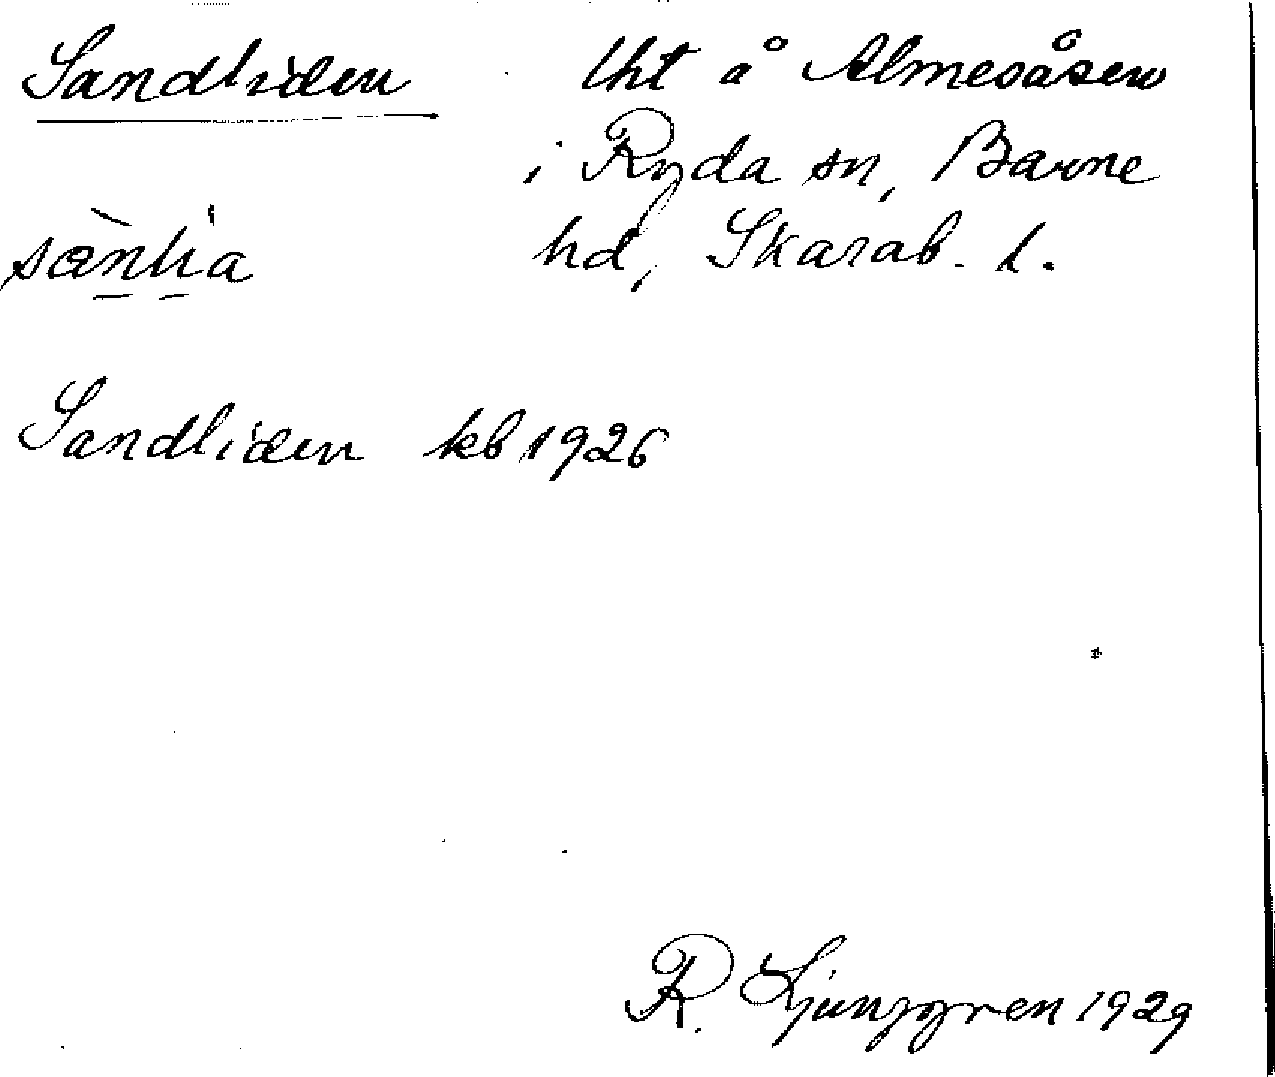 Sandliden lht å Almesåsen
i Ryda sn, Barne
sa̠nli̠a hd, Skarab. l.
Sandliden kb 1926
R. Ljunggren 1929